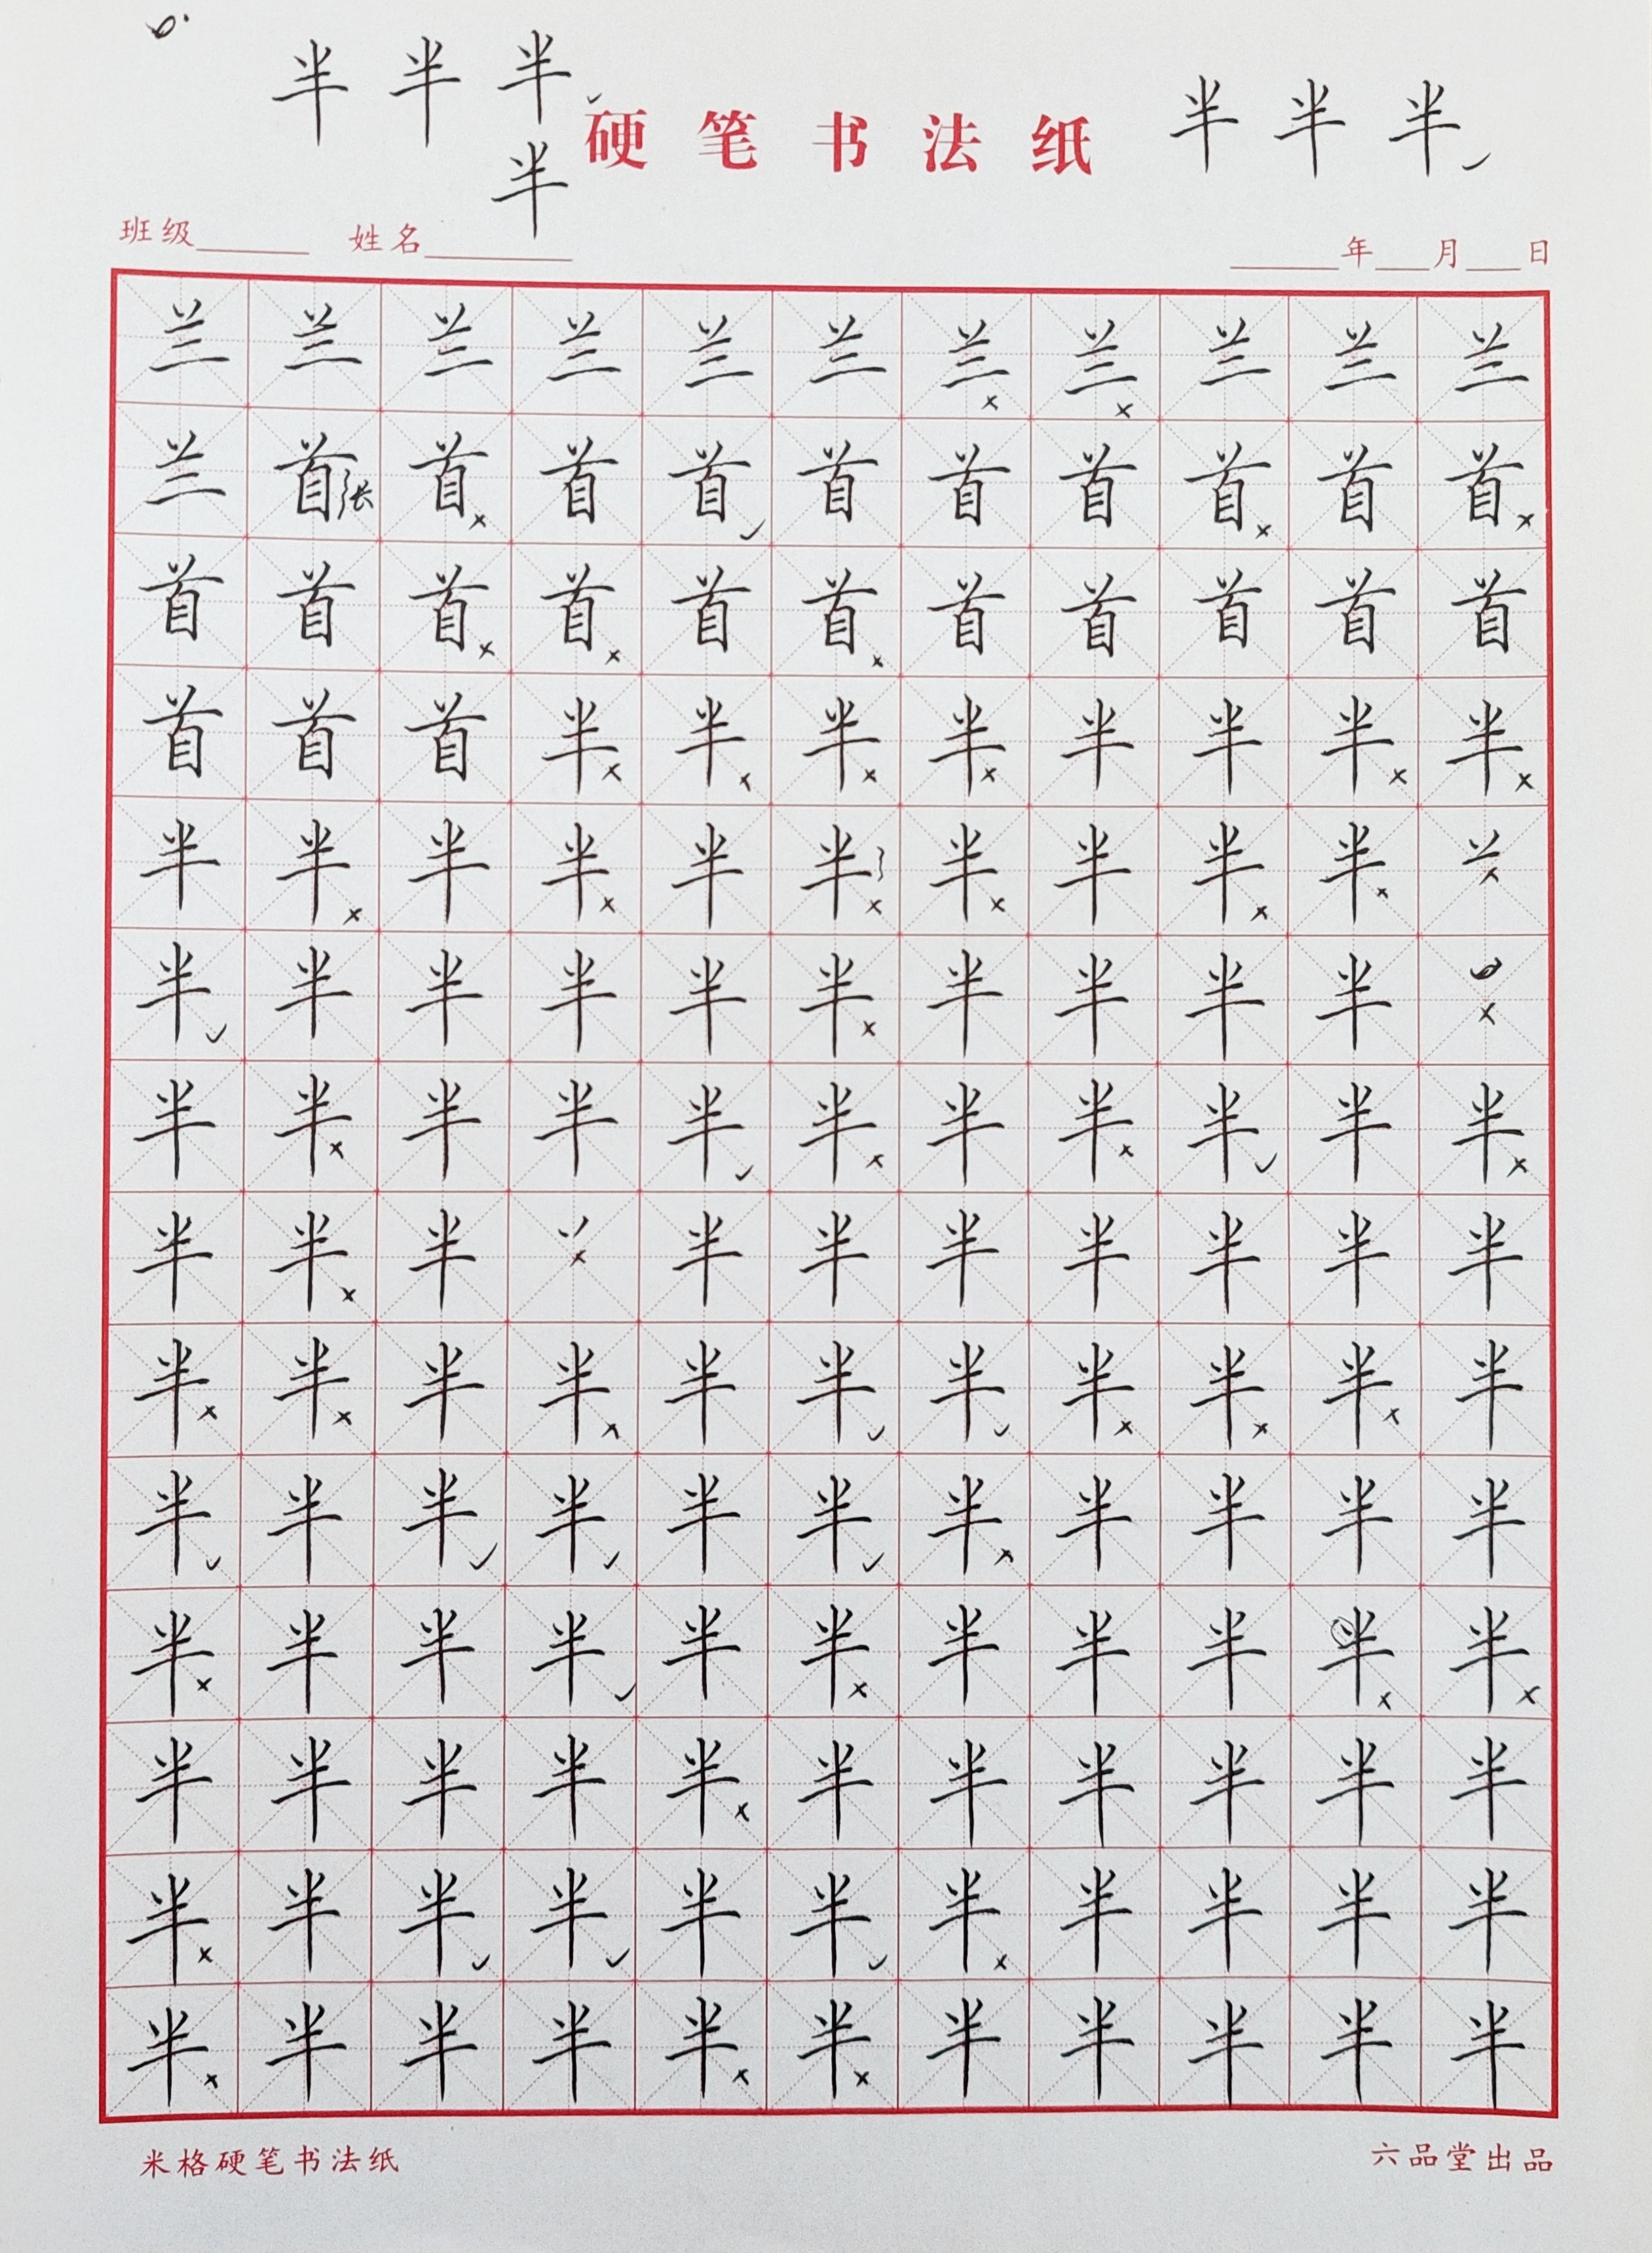 半 半 半
硬笔书法纸
半 半 半
半
班级 姓名 年 月 日
兰 兰 兰 兰 兰 兰 兰 兰 兰 兰 兰
兰 首 长 首 首 首 首 首 首 首 首 首
首 首 首 首 首 首 首 首 首 首 首
首 首 首 半 半 半 半 半 半 半 半
半 半 半 半 半 半 半 半 半 半
半 半 半 半 半 半 半 半 半 半
半 半 半 半 半 半 半 半 半 半 半
半 半 半 半 半 半 半 半 半 半
半 半 半 半 半 半 半 半 半 半 半
半 半 半 半 半 半 半 半 半 半 半
半 半 半 半 半 半 半 半 半 半 半
半 半 半 半 半 半 半 半 半 半 半
半 半 半 半 半 半 半 半 半 半 半
半 半 半 半 半 半 半 半 半 半 半
米格硬笔书法纸 六品堂出品